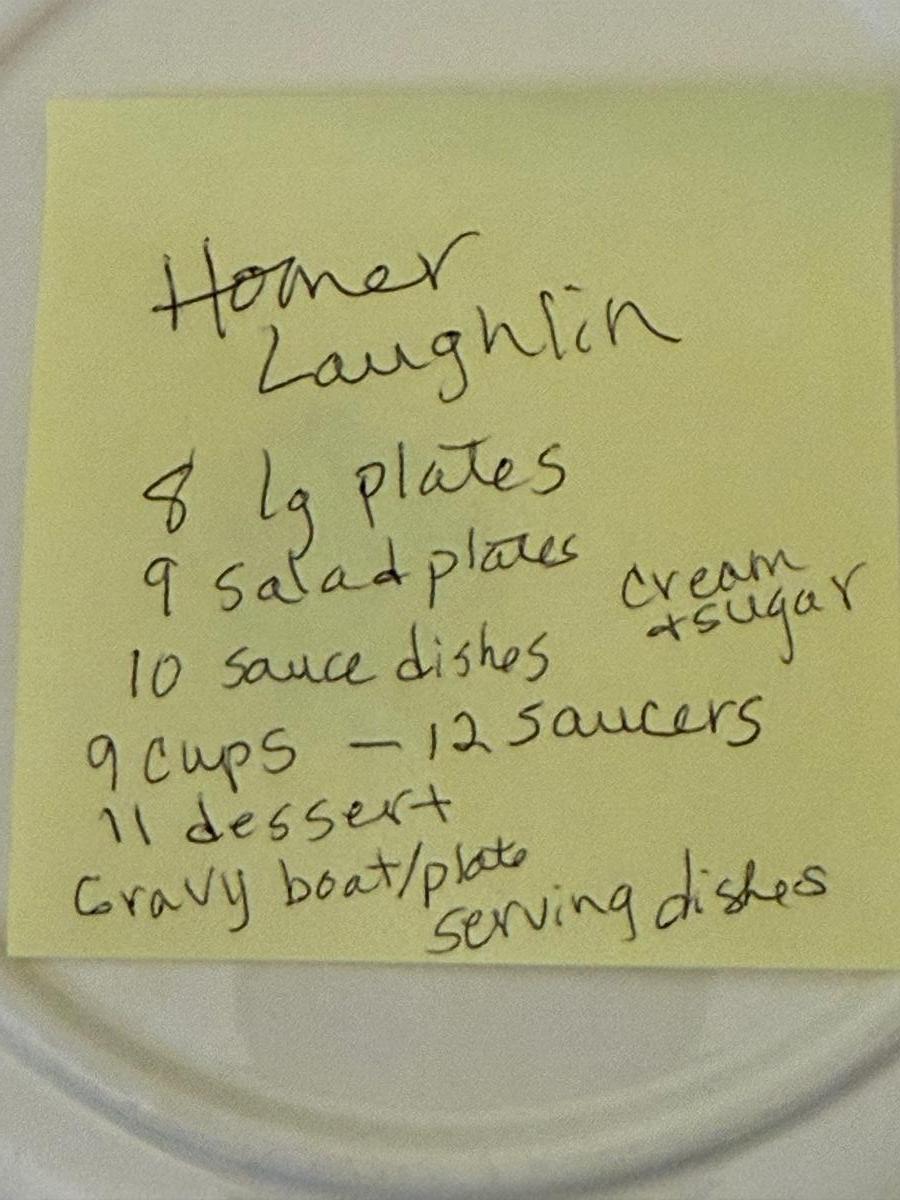 Homer
Laughlin
8 lg plates
9 salad plates
cream
+ sugar
10 sauce dishes
9 cups - 12 saucers
11 dessert
Gravy boat/plate
serving dishes